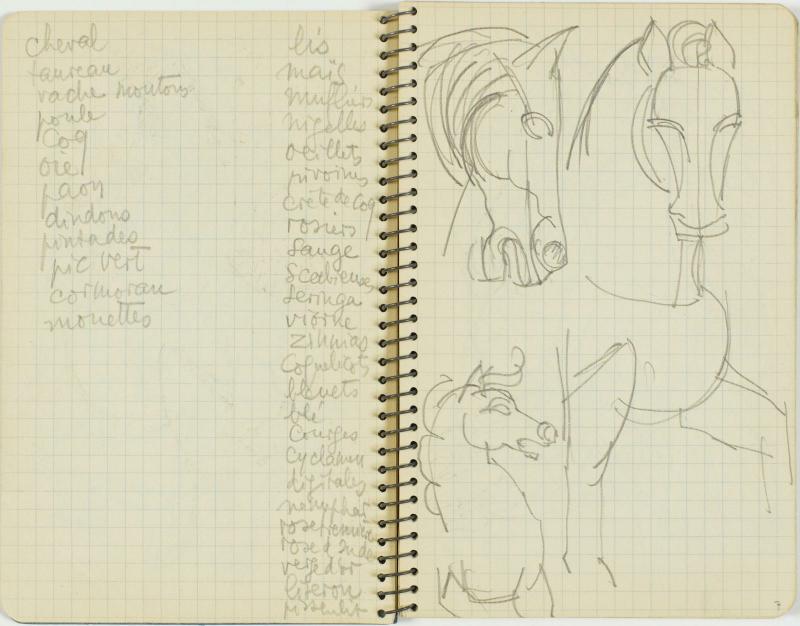 cheval
taureau
vache moutons
poule
Coq
oie
paon
dindons
pintades
pic vert
cormoran
mouettes
lis
maïs
mufliers
nigelles
oeillets
pivoines
Crête de Coq
rosiers
Sauge
Scabieuses
Seringa
viorne
zinnias
Coquelicots
bleuets
blé
Courges
Cyclamen
digitales
nenuphar
rose tremière
rose d'Inde
verge d'or
liseron
pissenlit